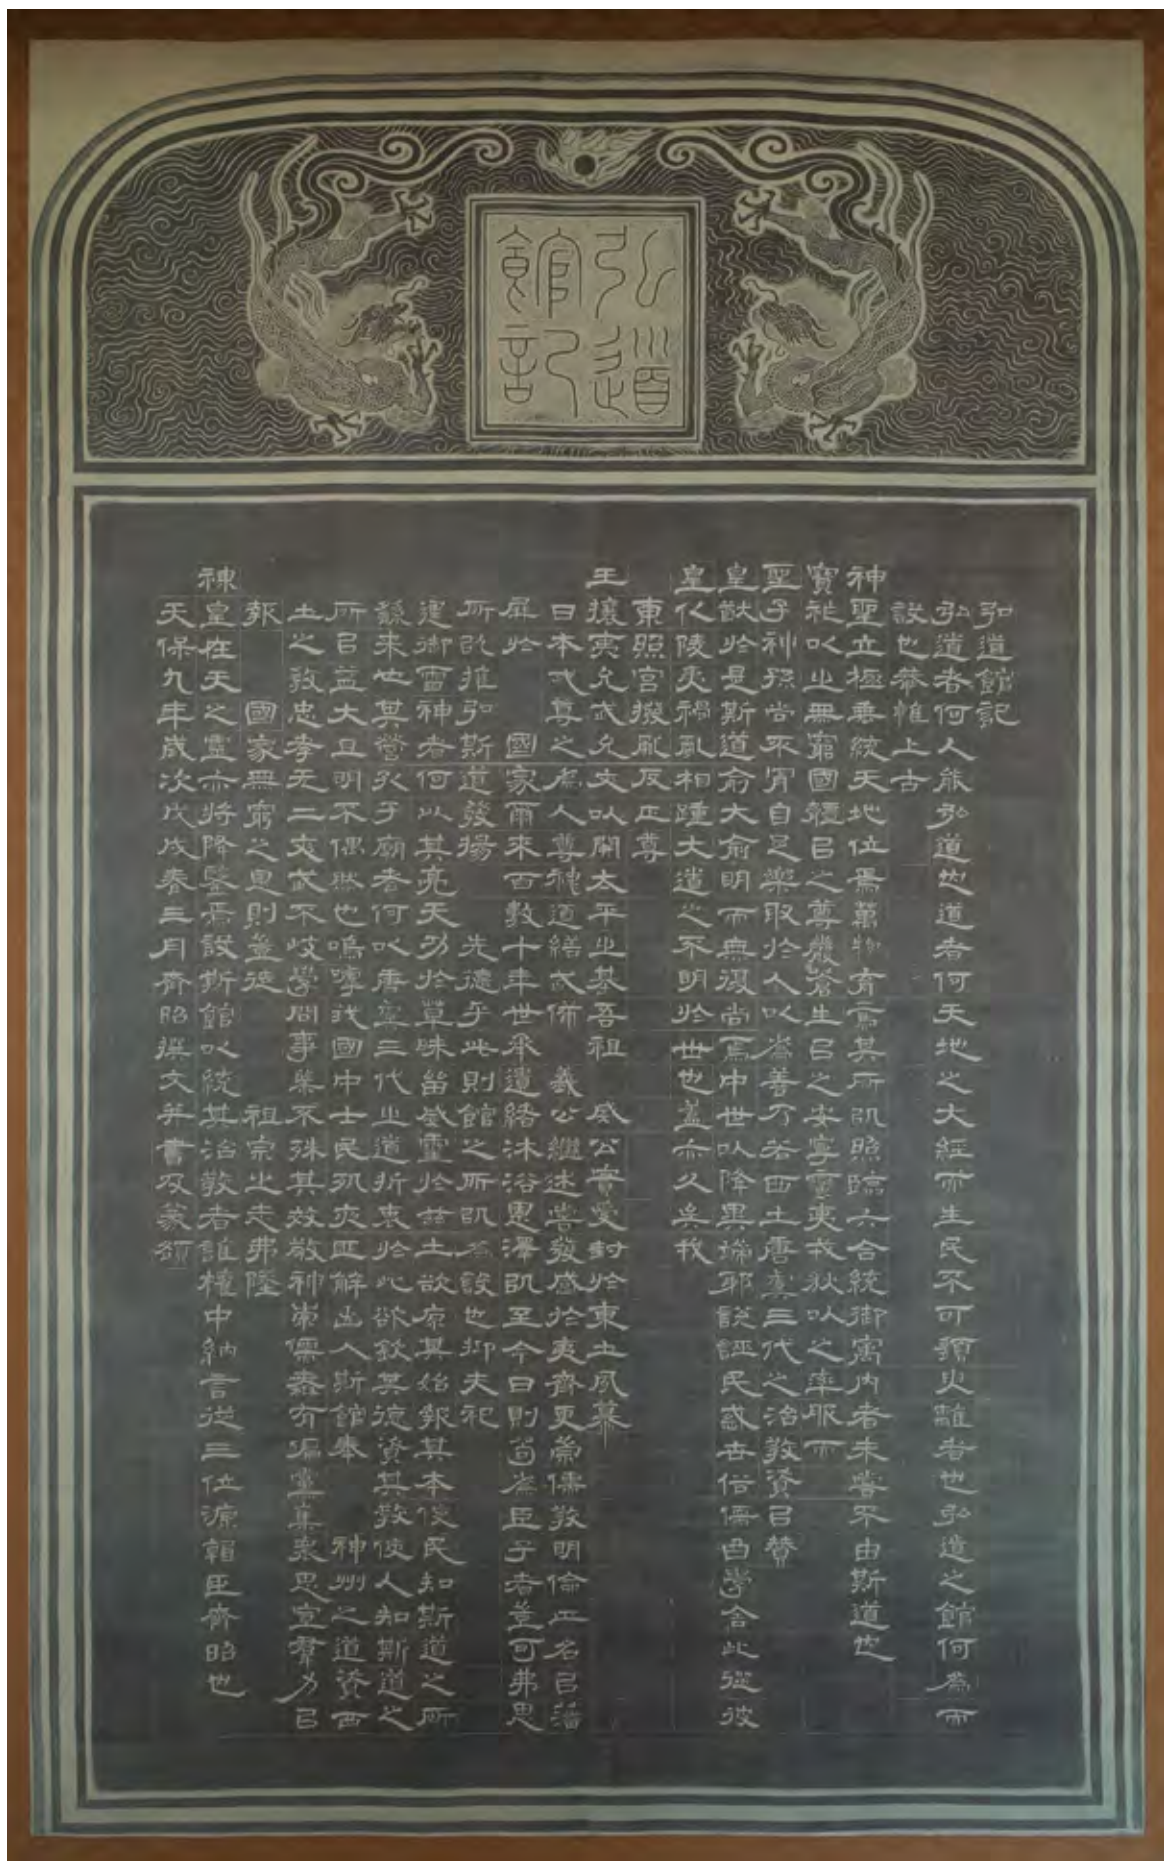 弘道
館記
弘道館記
弘道者何人能弘道也道者何天地之大經而生民不可須臾離者也弘道之館何爲而
設也恭惟上古
神聖立極垂統天地位焉萬物育焉其所以照臨六合統御寓内者未嘗不由斯道也
寶祚以之無窮國體以之尊嚴蒼生以之安寧蠻夷戎狄以之率服而
聖子神孫尚不肯自足樂取於人以爲善乃若西土唐虞三代之治教資以贊
皇猷於是斯道俞大俞明而無復尚焉中世以降異端邪說誣民惑世俗儒曲學舍此從彼
皇化陵夷禍亂相踵大道之不明於世也蓋亦久矣我
東照宮撥亂反正尊
王攘夷允武允文以開太平之基吾祖 威公實受封於東土夙慕
日本武尊之爲人尊神道繕武備 義公繼述嘗發感於夷齊更崇儒教明倫正名以藩
屏於 國家爾來百數十年世承遺緒沐浴恩澤以至今日則苟爲臣子者豈可弗思
所以推弘斯道發揚 先德乎此則館之所以爲設也抑夫祀
建御雷神者何以其亮天功於草昧留威靈於茲土欲原其始報其本使民知斯道之所
繇來也其營孔子廟者何以唐虞三代之道折衷於此欲欽其德資其教使人知斯道之
所以益大且明不偶然也嗚呼我國中士民夙夜匪解出入斯館奉 神州之道資西
土之教忠孝无二文武不岐學問事業不殊其效敬神崇儒無有偏黨集衆思宣羣力以
報 國家無窮之恩則豈徒 祖宗之志弗墜
神皇在天之靈亦將降鑒焉設斯館以統其治教者誰權中納言從三位源朝臣齊昭也
天保九年歲次戊戌春三月齊昭撰文并書及篆額